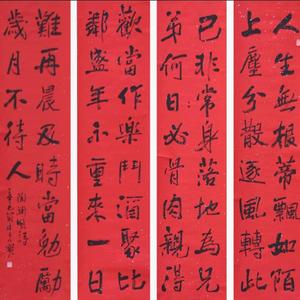 人生無根蒂飄如陌
上塵分散逐風轉此
已非常身落地為兄
弟何日必骨肉親得
歡當作樂鬥酒聚比
鄰盛年不重來一日
難再晨及時當勉勵
歲月不待人
陶淵明詩